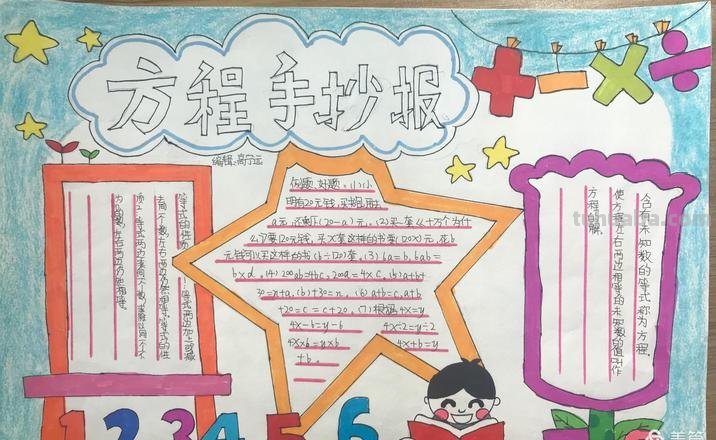 方程手抄报
编辑:高宁远
等式的性质1:等式两边加上或减
去同一个数,左右两边仍然相等。等式的性
质2:等式两边乘同一个数,或除以同一个不
为0的数,左右两边仍然相等。
佳题、好题。(1)小
明有20元钱,买书包用去
a元,还剩下(20-a)元。(2)买一套《十万个为什
么》要120元钱,买X套这样的书要(120X)元,花b
元钱可以买这样的书(b÷120)套。(3)6a=b,6ab=
b×b。(4)200ab=4bc,200a=4×c。(5)a+b+
30=n+a,(b)+30=n。(6)a+b=c,a+b
+20=c=c+20。(7)根据4x=y
4x-b=y-6
4x÷2=y÷2
4x×b=y×b
4x+b=y
+b。
含有未知数的等式称为方程。
使方程左右两边相等的未知数的值叫作
方程的解。
1 2 3 4 5 6
tukuppt.com
美篇